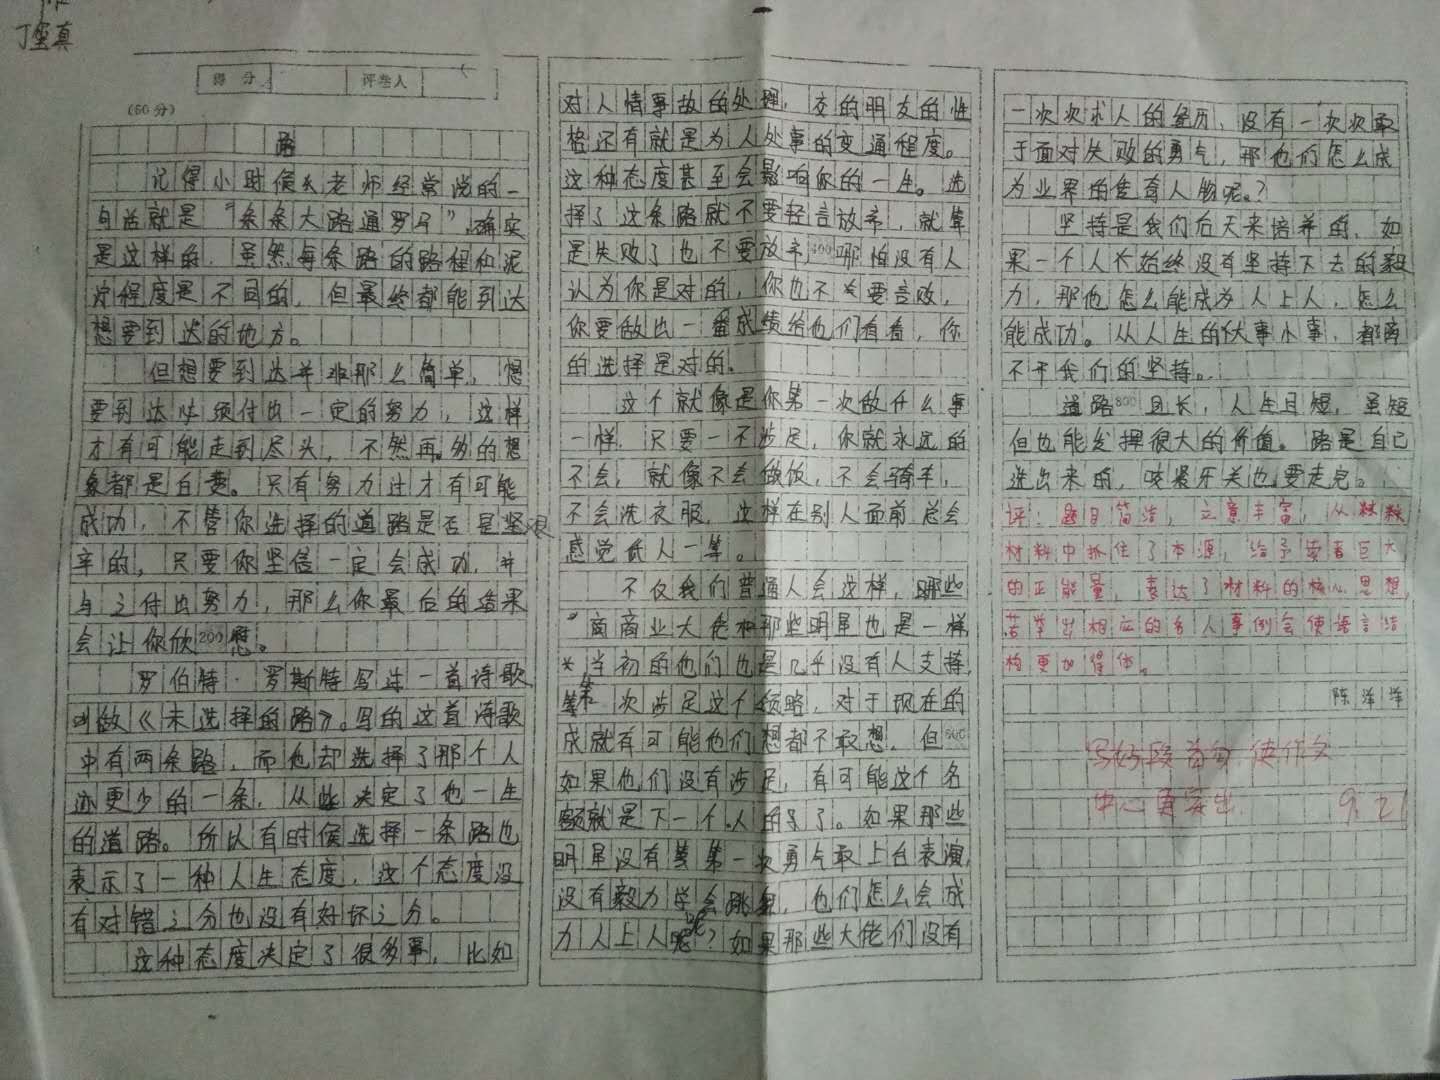 丁圣真
得分 评卷人
(60分)
路
记得小时侯老师经常说的一
句话就是“条条大路通罗马”,确实
是这样的,虽然每条路的路程和泥
泞程度是不同的,但最终都能到达
想要到达的地方。
但想要到达并非那么简单,想
要到达必须付出一定的努力,这样
才有可能走到尽头,不然再多的想
象都是白费。只有努力过才有可能
成功,不管你选择的道路是否是坚艰
辛的,只要你坚信一定会成功,并
与之付出努力,那么你最后的结果
会让你欣200慰。
罗伯特·罗斯特写过一首诗歌
叫做《未选择的路》。写的这首诗歌
中有两条路,而他却选择了那个人
迹更少的一条,从此决定了他一生
的道路。所以有时候选择一条路也
表示了一种人生态度,这个态度没
有对错之分也没有好坏之分。
这种态度决定了很多事,比如
对人情事故的处理,交的朋友的性
格还有就是为人处事的变通程度。
这种态度甚至会影响你的一生。选
择了这条路就不要轻言放弃,就算
是失败了也不要放弃400哪怕没有人
认为你是对的,你也不要言败,
你要做出一番成绩给他们看看,你
的选择是对的。
这个就像是你第一次做什么事
一样,只要一不涉足,你就永远的
不会,就像不会做饭,不会骑车,
不会洗衣服,这样在别人面前总会
感觉低人一等。
不仅我们普通人会这样,哪些
商业大佬和那些明星也是一样,
当初的他们也是几乎没有人支持,
第一次涉足这个领路,对于现在的
成就有可能他们想都不敢想,但600
如果他们没有涉足,有可能这个名
额就是下一个人的了。如果那些
明星没有第一次勇气敢上台表演,
没有毅力学会跳舞,他们怎么会成
为人上人呢?如果那些大佬们没有
一次次求人的经历,没有一次次敢
于面对失败的勇气,那他们怎么成
为业界的佳有人物呢?
坚持是我们后天来培养的,如
果一个人长始终没有坚持下去的毅
力,那他怎么能成为人上人,怎么
能成功。从人生的大事小事,都离
不开我们的坚持。
道路800且长,人生且短,虽短
但也能发挥很大的价值。路是自己
选出来的,咬紧牙关也要走完。
评:题目简洁,立意丰富,从
材料中抓住了本源,给予读者巨大
的正能量,表达了材料的核心思想,
若举出相应的名人事例会使语言结
构更加得体。
陈洋洋
写好段首句,使作文
中心更突出 9.21